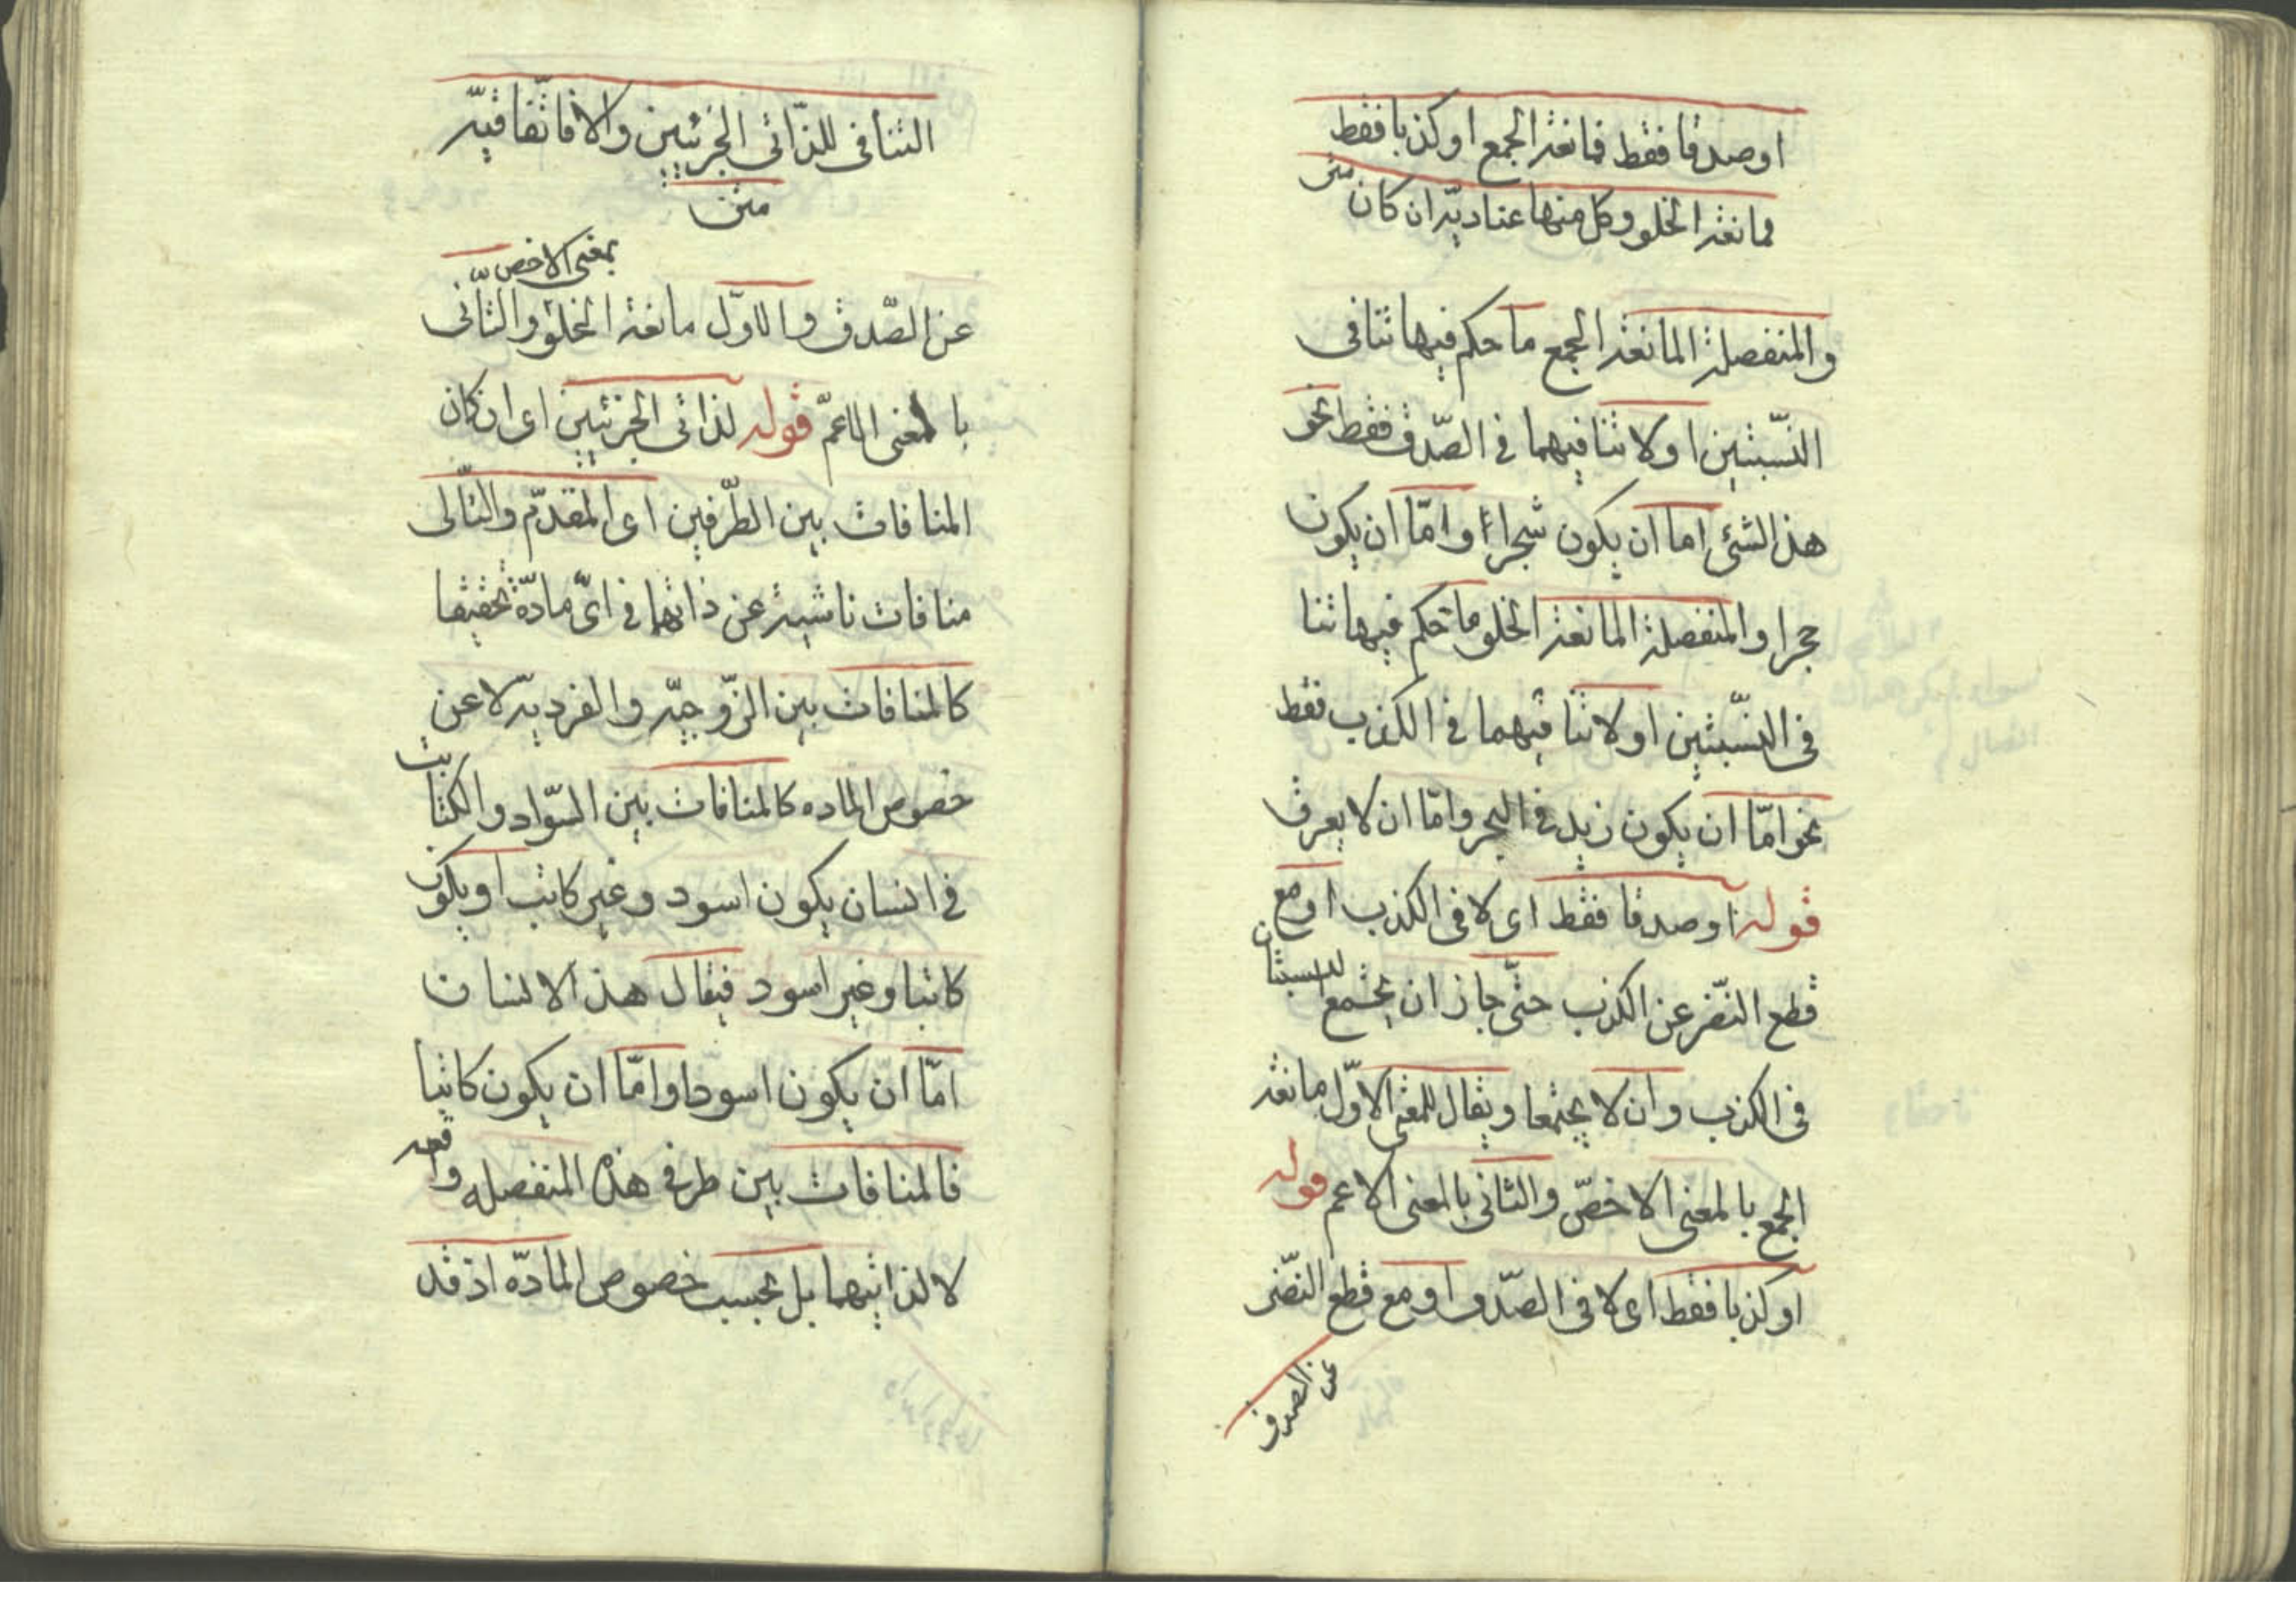 او صدقا فقط فمانعة الجمع او كذبا فقط
متن
فمانعة الخلو وكل منها عنادية ان كان
والمنفصلة المانعة الجمع ما حكم فيها تنافى
النّسبتين او لا تنافيهما فى الصّدق فقط نحو
هذ الشئ اما ان يكون شجرا او امّا ان يكون
حجرا والمنفصلة المانعة الخلو ما حكم فيها تنا
فى النّسبتين او لا تنا فيهما فى الكذب فقط
نحو امّا ان يكون زيد فى البحر وامّا ان لا يعرق
قوله او صدقا فقط اى لا فى الكذب او مع
قطع النّضر عن الكذب حتّى جاز ان يجتمع النسبتان
فى الكذب وان لا يجتمعا ويقال للمعنى الاوّل مانعة
الجمع بالمعنى الاخصّ والثانى بالمعنى الاعم قوله
او كذبا فقط اى لا فى الصّدق او مع قطع النّضر
عن الصدق
التنافى للذّاتى الجزئيين والا فاتّفاقيّة
متن
بمعنى الاخص
عن الصّدق والاوّل مانعة الخلو والثّانى
با لمعنى الاعمّ قوله لذاتى الجزئيين اى ان كان
المنافات بين الطّرفين اى المقدّم والتّالى
منافات ناشية عن ذاتهما فى اىّ مادّة تحقيقا
كالمنافات بين الزّوجيّة والفرديّة لا عن
خصوص الماده كالمنافات بين السّواد والكتابت
فى انسان يكون اسود وغير كاتب او يكون
كاتبا وغير اسود فيقال هذ الانسان
امّا ان يكون اسودا وامّا ان يكون كاتبا
فالمنافات بين طرفى هذه المنفصله واقعه
لا لذاتيهما بل بحسب خصوص المادّه اذ قد